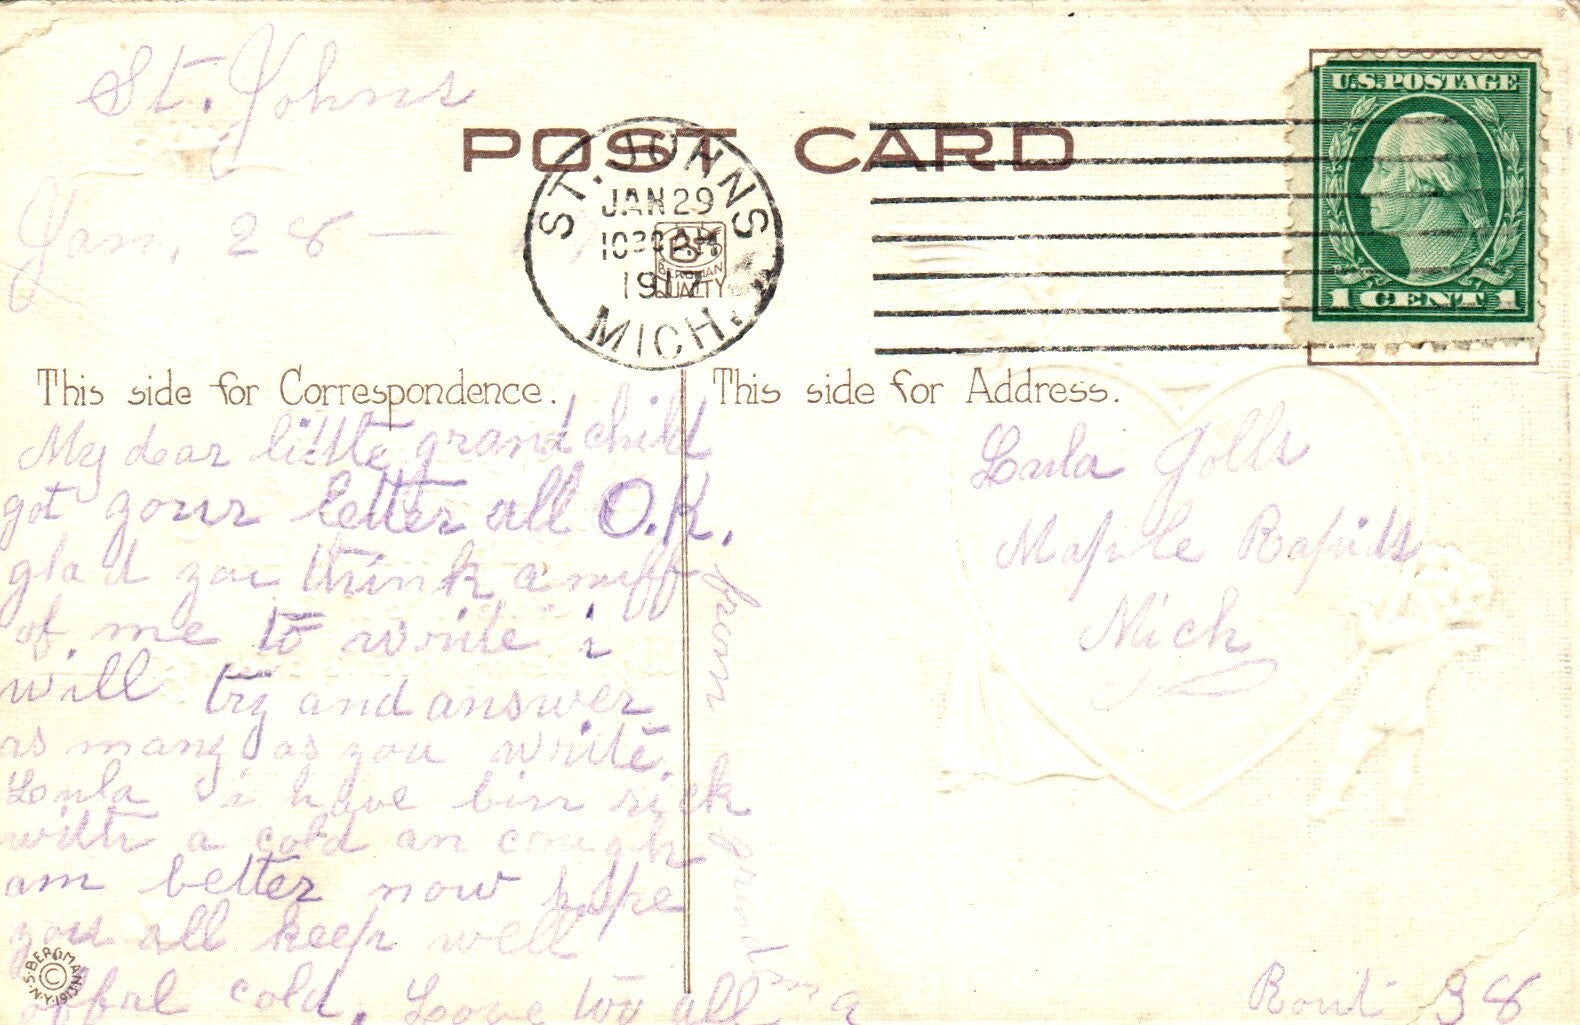 St. Johns
Jan, 28 —
POST CARD
ST. JOHNS
JAN 29
1030 AM
1917
MICH.
BERGMAN
QUALITY
U.S. POSTAGE
1 CENT 1
This side for Correspondence.
My dear little grand child
got your letter all O.K.
glad you think a nuff
of me to write i
will try and answer
as many as you write.
Lula i have bin sick
with a cold an cough
am better now hope
you all keep well
cold. Love too all
from grandma
S. BERGMAN N.Y. 1913 ©
This side for Address.
Lula Jolls
Maple Rapids
Mich
Rout 38